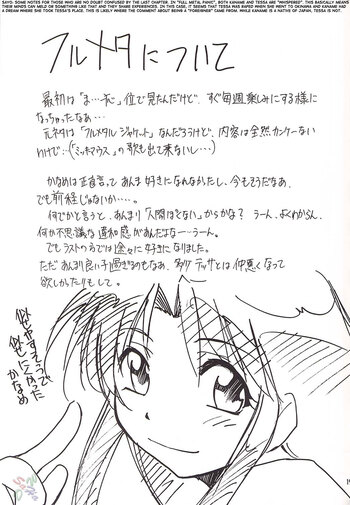 SAYO: SOME NOTES FOR THOSE WHO ARE NO DOUBT CONFUSED BY THE LAST CHAPTER. IN "FULL METAL PANIC", BOTH KANAME AND TESSA ARE "WHISPERED". THIS BASICALLY MEANS
THEIR MINDS CAN MELD OR SOMETHING LIKE THAT AND THEY SHARE EXPERIENCES. IN THIS CASE, IT SEEMS THAT TESSA WAS RAPED WHEN SHE WENT TO OKINAWA AND KANAME HAD
A DREAM WHERE SHE TOOK TESSA'S PLACE. THIS IS LIKELY WHERE THE COMMENT ABOUT BEING A "FOREIGNER" CAME FROM. WHILE KANAME IS A NATIVE OF JAPAN, TESSA IS NOT.
フルメタについて
最初は「ま…ね」位で見たんだけど、すぐ毎週楽しみにする様に
なっちゃったなぁ…
元ネタは「フルメタル ジャケット」なんだろうけど、内容は全然カンケーない
わけで…(「ミッキーマウス」の歌も出て来ないし…)
かなめは正直言って あんま好きになれなかったし、今もそうだなあ、
でも前程じゃないか…。
何でかと言うと、あんまり「人間くさくない」からかな? うーん、よくわからん、
何か不思議な違和感があんだよなー…うーん。
でも ラストの方では 途々に好きになりました。
ただ あんまり良い子過ぎるのもなぁ、多少 テッサとは仲悪くなって
欲しかったりもして。
似せやすそうで
似せにくかった
かなめ